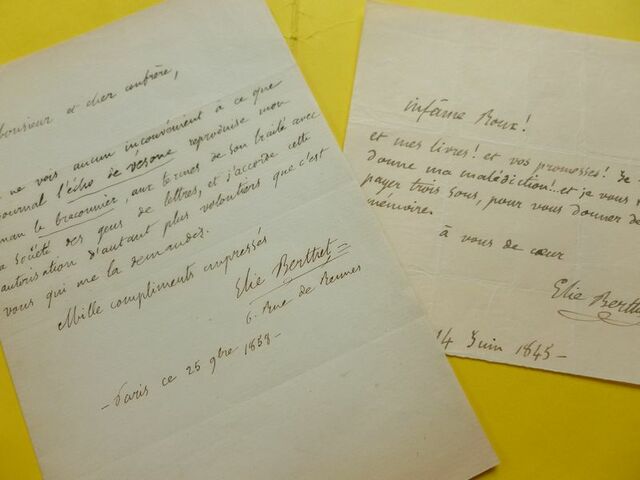 Monsieur et cher confrère,
ne vois aucun inconvénient à ce que
journal l'écho de vésone reproduise mon
man le braconnier, aux termes de son traité avec
a Société des gens de lettres, et j'accorde cette
autorisation d'autant plus volontiers que c'est
vous qui me la demandez.
Mille compliments empressés
Elie Berthet
6. rue de Rennes
- Paris ce 25 9bre 1858 -
infâme Roux!
et mes livres! et vos promesses! Je
donne ma malédiction!.. et je vous
payer trois sous, pour vous donner de
mémoire.
à vous de cœur
Elie Berthet
14 Juin 1845 -